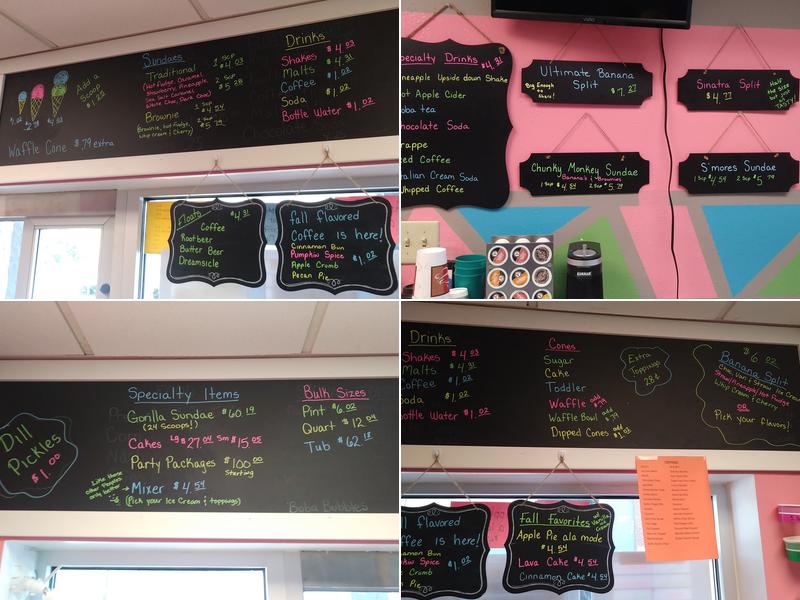 Add a
scoop
$1.22
Waffle Cone $.79 extra
Sundaes
Traditional
(Hot fudge, Caramel,
Strawberry, Pineapple,
Sea Salt Caramel,
White Choc, Dark Choc)
1 Scp
$4.03
2 Scp
$5.28
Brownie
1 Scp
$4.54
Brownie, hot fudge,
whip cream & Cherry)
2 Scp
$5.79
Drinks
Shakes $4.03
Malts $4.31
Coffee $1.02
Soda $1.02
Bottle Water $1.02
Floats $4.31
Coffee
Rootbeer
Butter Beer
Dreamsicle
fall flavored
Coffee is here!
Cinnamon Bun
Pumpkin Spice
$1.02
Apple Crumb
Pecan Pie
pecialty Drinks $4.31
ineapple Upside down Shake
ot Apple Cider
oba tea
hocolate Soda
rappe
ced Coffee
talian Cream Soda
Whipped Coffee
Ultimate Banana
Split
Big Enough
to Share!
$7.37
Sinatra Split
$4.77
Half
the Size
but Just as
TASTY!
Chunky Monkey Sundae
Banana's & Brownies
1 Scp $4.54 2 Scp $5.79
S'mores Sundae
1 Scp $4.54 2 Scp $5.79
Dill
Pickles
$1.00
Specialty Items
Gorilla Sundae $60.19
(24 Scoops!)
Cakes Lg $27.04 Sm $15.05
Party Packages $100.00
Starting
Like those
other Places
only better
Mixer $4.54
(Pick your Ice Cream & toppings)
Bulk Sizes
Pint $6.02
Quart $12.04
Tub $62.18
Boba Bubbles
Drinks
Shakes $4.03
Malts $4.31
Coffee $1.02
oda $1.02
ottle Water $1.02
Cones
Sugar
Cake
Toddler
Waffle add $.79
Waffle Bowl add $.79
Dipped Cones add $1.02
Extra
Toppings
28¢
$6.02
Banana Split
Choc, Van & Straw Ice Cream
Straw/Pineapple/Hot Fudge
Whip Cream & Cherry
OR
Pick your flavors!
l flavored
ffee is here!
amon Bun
kin Spice
$1.02
e Crumb
n Pie
Fall Favorites
w/ Vanilla
Ice
Cream
Apple Pie ala mode
$4.54
Lava Cake $4.54
Cinnamon Cake $4.54